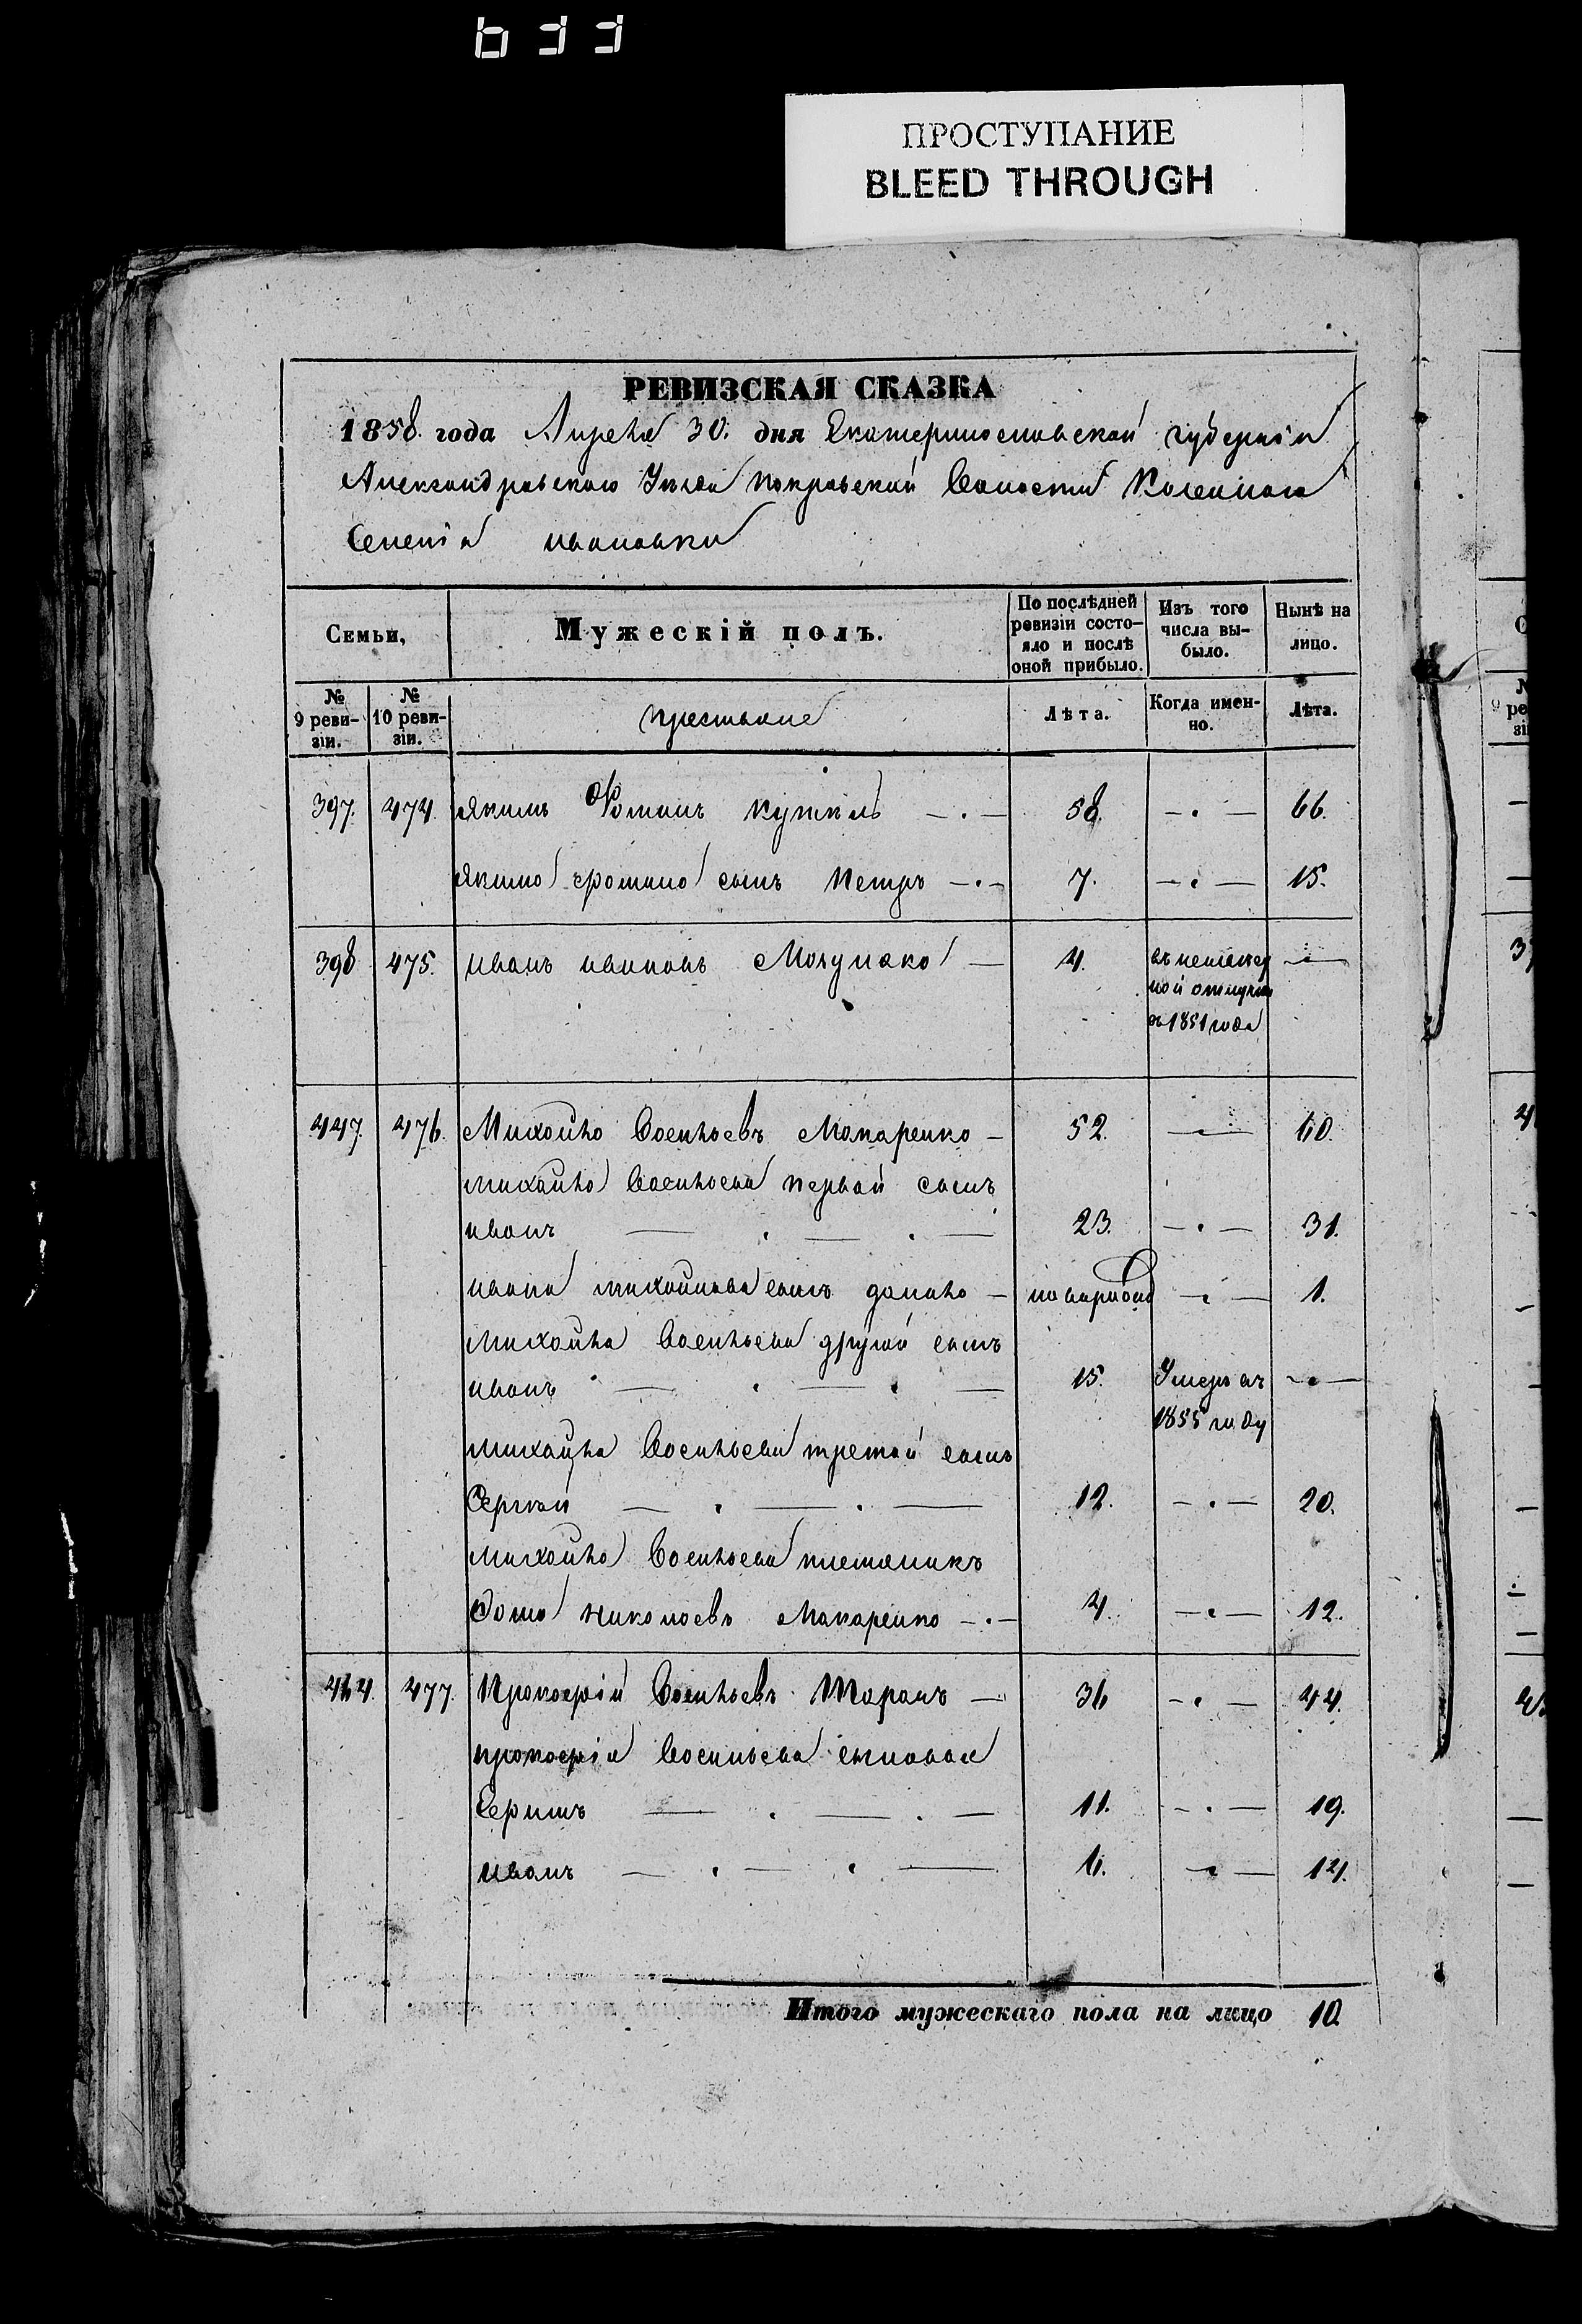 633
ПРОСТУПАНИЕ
BLEED THROUGH
РЕВИЗСКАЯ СКАЗКА
1858. года Апреля 30. дня Екатеринославской губернiи
Александровского Уезда Покровской Волости Казеннаго
Селенiя Ивановки
Семьи,
Мужескій полъ.
По послѣдней ревизіи состо-яло и послѣ оной прибыло.
Изъ того числа вы-было.
Нынѣ на лицо.
№ 9 реви-зіи.
№ 10 реви-зіи.
Крестьяне
Лѣта.
Когда имен-но.
Лѣта.
397. 474. Якимъ 58. 66.
Якима сынъ Петръ 7. 15.
398 475. Иванъ Ивановъ 4. 
отлучке
съ 1851 года
447. 476. Михайло Васильевъ Макаренко 52. 60.
Михайла Васильева первой сынъ
Иванъ 23. 31.
Ивана Михайлова сынъ Данило 1.
Михайла Васильева другой сынъ
Иванъ 15. Умеръ въ
1855 году
Михайла Васильева третой сынъ
Сергей 12. 20.
Михайла Васильева племяникъ
Николаевъ Макаренко 4. 12.
464. 477. Прокофiй Васильевъ Таранъ 36 44.
Прокофiя Васильева сыновья
11. 19.
Иванъ 6. 14.
Итого мужескаго пола на лицо 10.